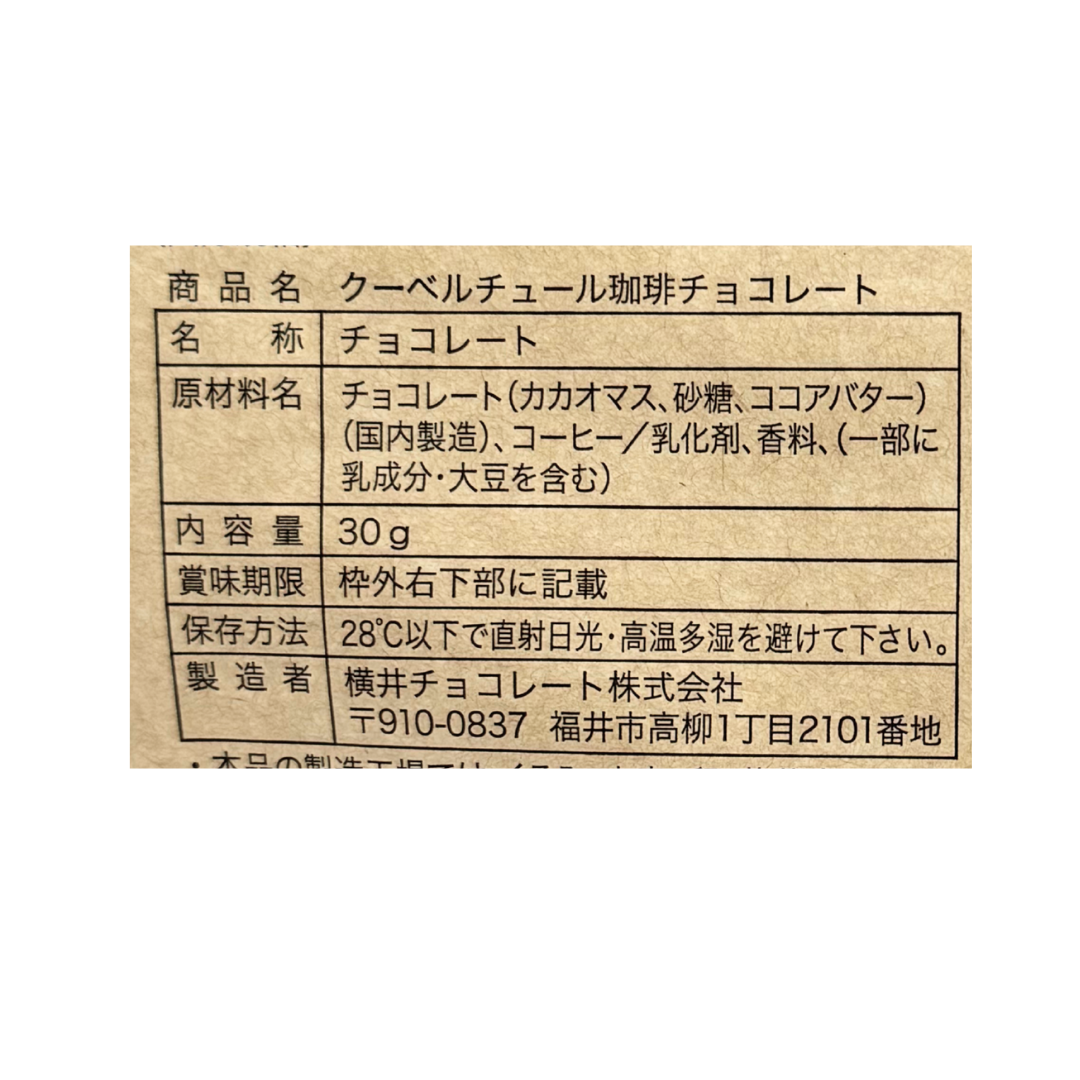 商品名 クーベルチュール珈琲チョコレート
名称 チョコレート
原材料名 チョコレート(カカオマス、砂糖、ココアバター)
(国内製造)、コーヒー/乳化剤、香料、(一部に
乳成分・大豆を含む)
内容量 30g
賞味期限 枠外右下部に記載
保存方法 28℃以下で直射日光・高温多湿を避けて下さい。
製造者 横井チョコレート株式会社
〒910-0837 福井市高柳1丁目2101番地
・本品の製造工場では